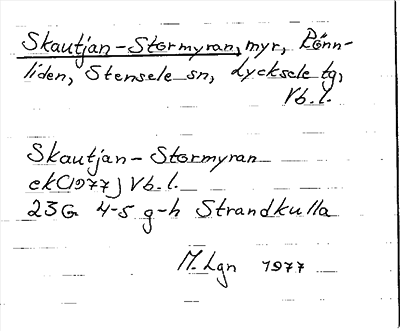 Skautjan-Stormyran, myr, Rönn-
liden, Stensele sn, Lycksele tg,
Vb.l.
Skautjan-Stormyran
ek(1977) Vb.l.
23G 4-5 g-h Strandkulla
M.Lgn 1977